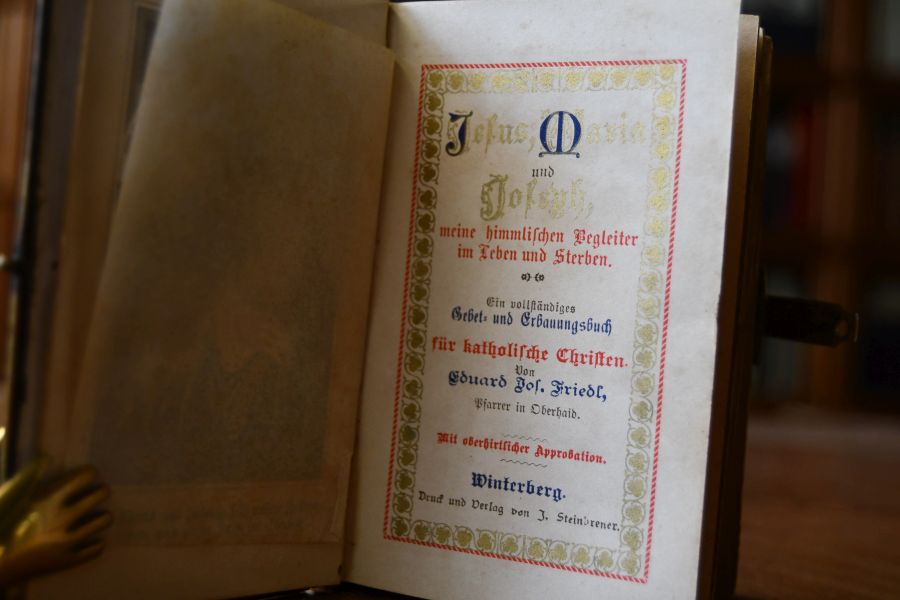 Jesus, Maria
und
Joseph,
meine himmlischen Begleiter
im Leben und Sterben.
Ein vollständiges
Gebet- und Erbauungsbuch
für katholische Christen.
Von
Eduard Jos. Friedl,
Pfarrer in Oberhaid.
Mit oberhirtlicher Approbation.
Winterberg.
Druck und Verlag von J. Steinbrener.